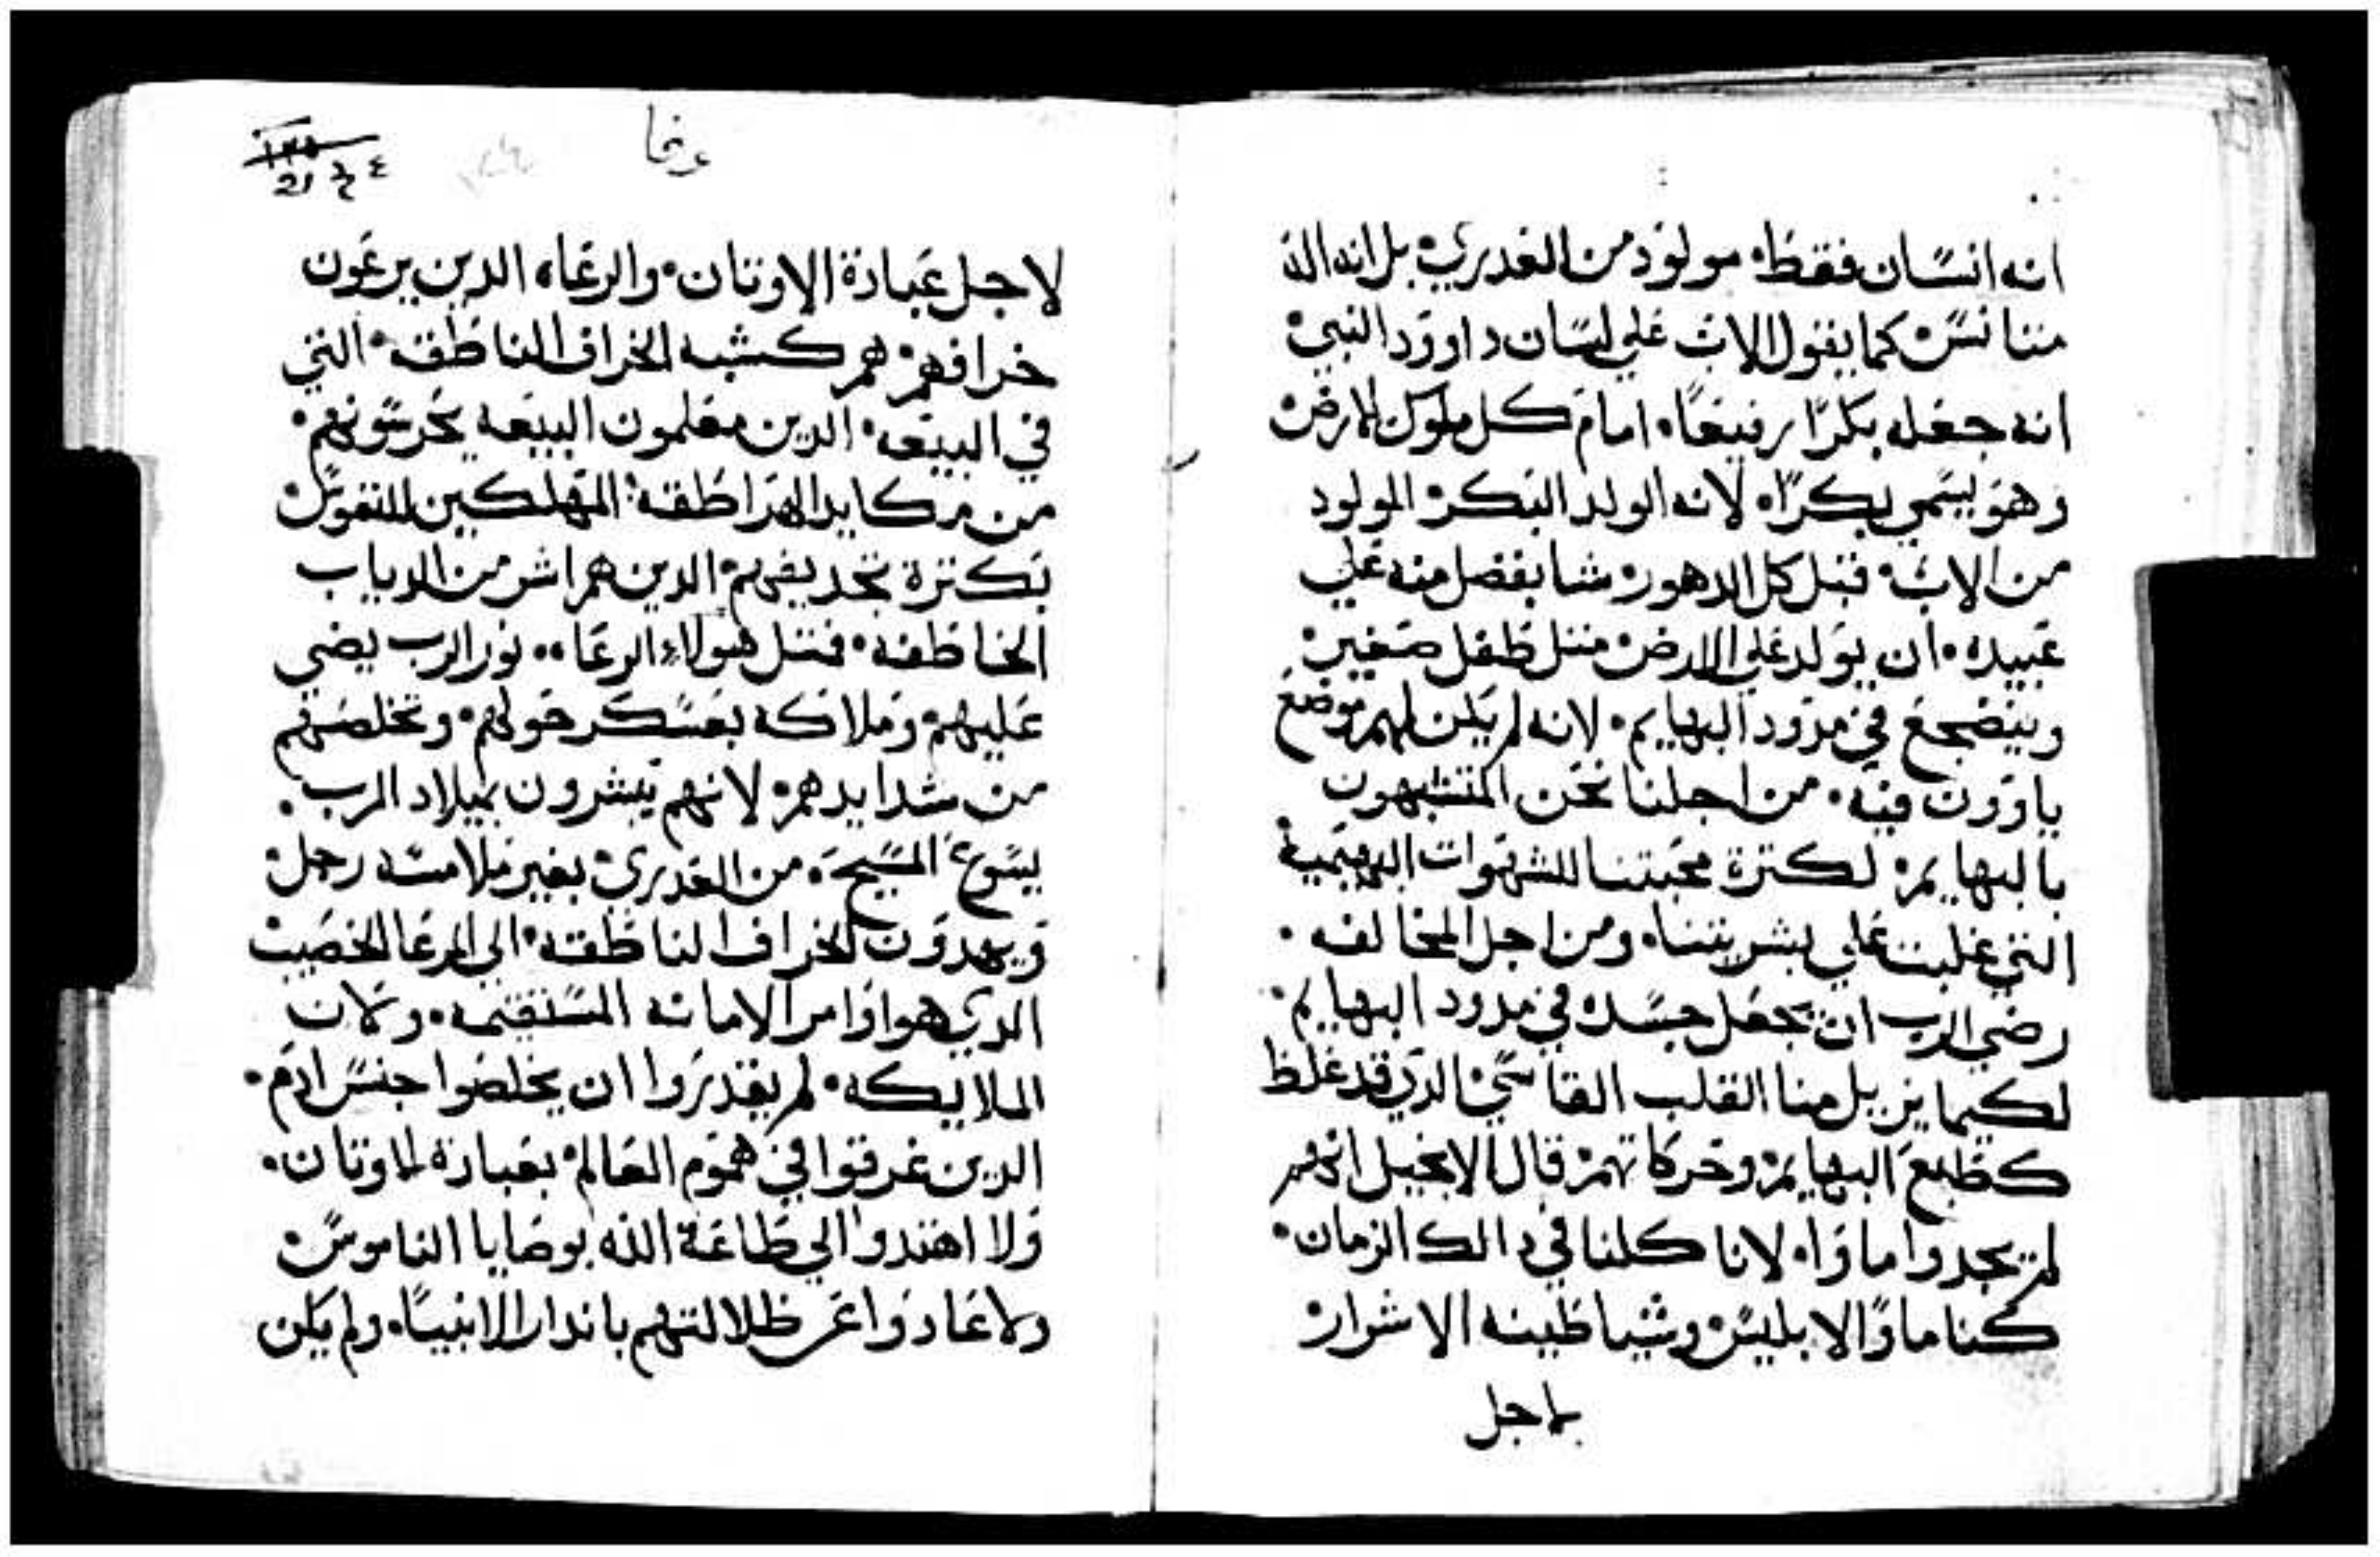 انه انسان فقط مولود من العدري بل انه اله
متانس كما يقول الاب علي لسان داوود النبي
انه جعله بكرا رفيعا امام كل ملوك الارض
وهو يسمي بكرا لانه الولد البكر المولود
من الاب قبل كل الدهور شا بفضل منه علي
عبيده ان يولد علي الارض متل طفل صغير
وينضجع في مدود البهايم لانه لم يكن لهم موضع
ياوون فيه من اجلنا نحن المتشبهون
بالبهايم لكترة محبتنا للشهوات البهيمية
التي غلبت علي بشريتنا ومن اجل المخالفه
رضي الرب ان يجعل جسده في مدود البهايم
لكيما يزيل منا القلب القاسي الدي قد غلظ
كطبع البهايم وحركاتهم قال الانجيل انهم
لم يجدوا ماوا لانا كلنا في دالك الزمان
كنا ماوا لابليس وشياطينه الاشرار
لاجل
لاجل عبادة الاوتان والرعاه الدين يرعون
خرافهم هم كشبه الخراف الناطقه التي
في البيعه الدين معلمون البيعه يحرسونهم
من مكايد الهراطقه المهلكين للنفوس
بكترة تجديفهم الدين هم اشر من الدياب
الخاطفه فمتل هولاء الرعاه نور الرب يضي
عليهم وملاكه بعسكر حولهم وتخلصهم
من شدايدهم لانهم يبشرون بميلاد الرب
يسوع المسيح من العدري بغير ملامسة رجل
ويهدون الخراف الناطقه الي المرعا الخصيب
الدي هو اوامر الامانه المستقيمه وكان
الملايكه لم يقدروا ان يخلصوا جنس ادم
الدين غرقوا في هموم العالم بعبادة الاوتان
ولا اهتدوا الي طاعة الله بوصايا الناموس
ولا عادوا عن ظلالتهم باندار الانبيا ولم يكن